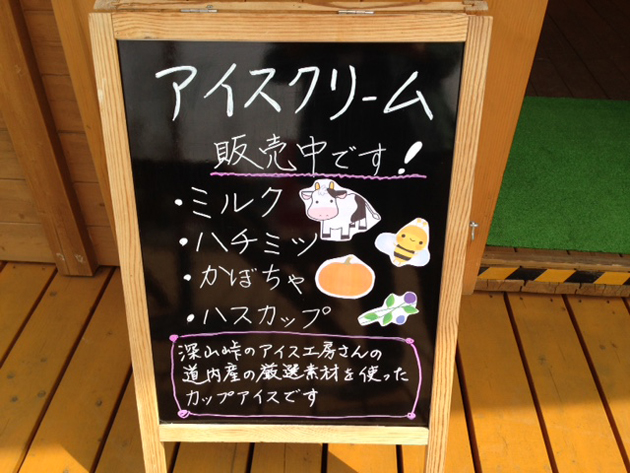 アイスクリーム
販売中です!
・ミルク
・ハチミツ
・かぼちゃ
・ハスカップ
深山峠のアイス工房さんの
道内産の厳選素材を使った
カップアイスです